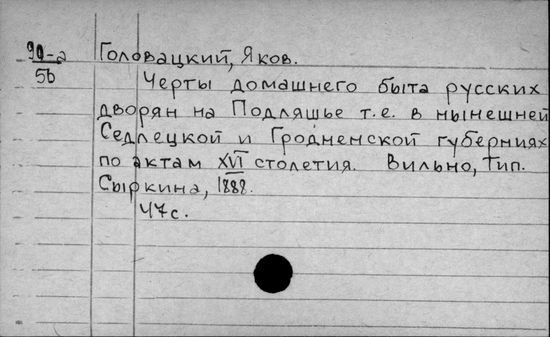 90-а Головацкий, Яков.
56 Черты домашнего быта русских
дворян на Подляшье т.е. в нынешней
Седлецкой и Гродненской губерниях
по актам XVI столетия. Вильно, Тип.
Сыркина, 1888.
47с.